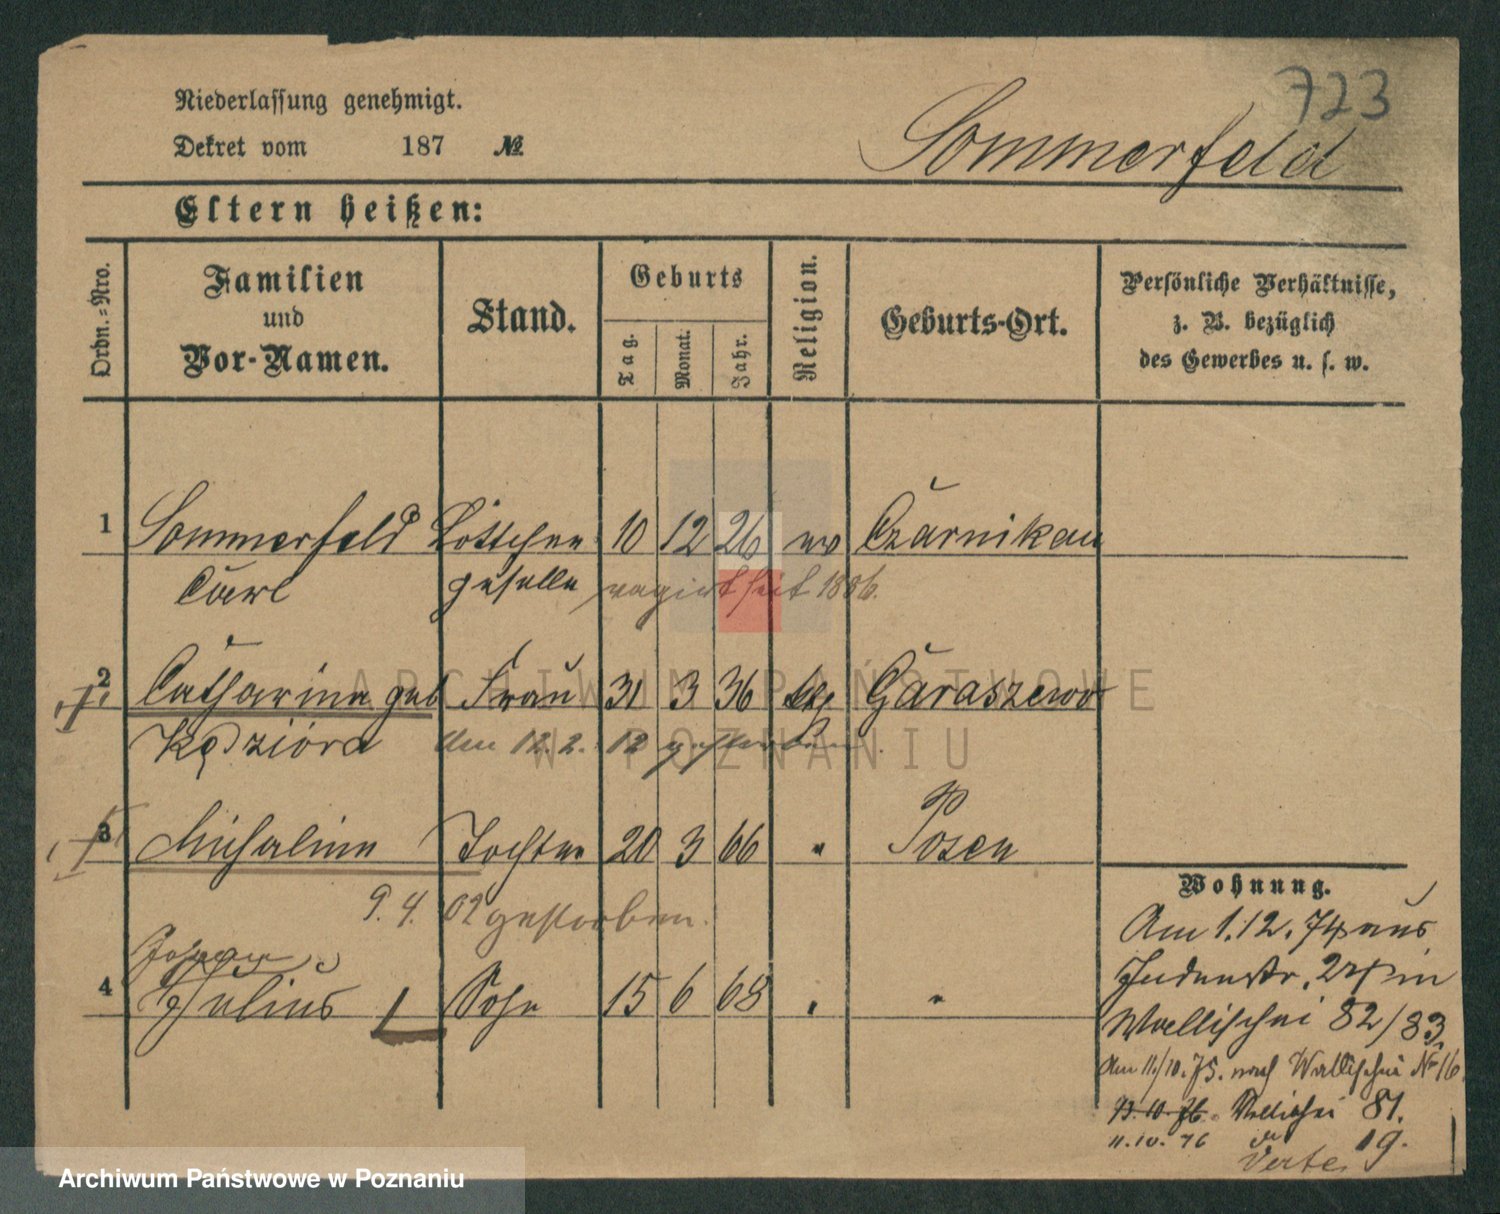 723
Niederlassung genehmigt.
Dekret vom 187 №
Sommerfeld
Eltern heißen:
Ordn.-Nro.
Familien
und
Vor-Namen.
Stand.
Geburts
Tag.
Monat.
Jahr.
Religion.
Geburts-Ort.
Persönliche Verhältnisse,
z. B. bezüglich
des Gewerbes u. s. w.
1 Sommerfeld Böttcher 10 12 26 ev Czarnikau
Carl geselle vagirt seit 1886.
2 Catharina geb Frau 31 3 36 kt Garaszewo
Kędziora Am 12. 2. 12 gestorben.
3 Michalina Tochter 20 3 66 " Posen
9. 4. 02 gestorben.
4 Julius Sohn 15 6 68 " "
Wohnung.
Am 1.12.74 aus
Judenstr. in
Wallischei 82/83
Am 11/10.75. nach Wallischei № 16
Wallischei 81.
11.10.76 19.
Verte
ARCHIWUM PAŃSTWOWE
W POZNANIU
Archiwum Państwowe w Poznaniu